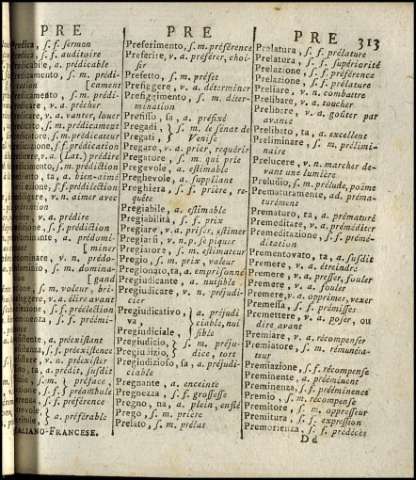 PRE
PRE
PRE
313
Predica, s. f. sermon
s. f. auditoire
a. prédicable
dicamento, s. m. prédi-
cation [cament
s. m. prédi-
v. a. prêcher
v. a. vanter, louer
s. m. prédicameur
s. m. prédicateur
s. f. prédication
v. a. (Lat.) prédire
s. m. prédiction
ta, a. bien-aimé
s. f. prédilection
v. n. aimer avec
v. a. prédire
s. f. prédiction
a. prédomi-
[minant
v. n. prédo-
s. m. domina-
[gand
s. m. voleur, bri-
v. a. élire avant
s. f. préélection
s. f. préémi-
nence
a. préexistant
s. f. préexistence
v. a. préexister
ta, a. prédit, susdit
s. m. } préface,
s. f. } préambule
s. f. préférence
a. préférable
ITALIANO-FRANCESE.
Preferimento, s. m. préférence
Preferire, v. a. préférer, choi-
sir
Prefetto, s. m. préfet
Prefiggere, v. a. déterminer
Prefiggimento, s. m. déter-
mination
Prefisso, sa, a. préfixé
Pregadi, } s. m. sénat de
Pregati, } Venise
Pregare, v. a. prier, requérir
Pregatore, s. m. qui prie
Pregevole, a. estimable
Preghevole, a. suppliant
Preghiera, s. f. prière, re-
quête
Pregiabile, a. estimable
Pregiabilità, s. f. prix
Pregiare, v. a. priser, estimer
Pregiarsi, v. n. p. se piquer
Pregiatore, s. m. estimateur
Pregio, s. m. prix, valeur
Pregionato, ta, a. emprisonné
Pregiudicante, a. nuisible
Pregiudicare, v. n. préjudi-
cier
Pregiudicativo, va, } a. préjudi-
ciable, nui
Pregiudiciale, } sible
Pregiudicio, } s. m. pré-
Pregiudizio, } judice, tort
Pregiudizioso, sa, a. préjudi-
ciable
Pregnante, a. enceinte
Pregnezza, s. f. grossesse
Pregno, na, a. plein, enflé
Prego, s. m. prière
Prelato, s. m. prélat
Prelatura, s. f. prélature
Prelatura, s. f. supériorité
Prelazione, s. f. préférence
Prelazione, s. f. prélature
Preliare, v. n. combattre
Prelibare, v. a. toucher
Prelibare, v. a. goûter par
avance
Prelibato, ta, a. excellent
Preliminare, s. m. prélimi-
naire
Prelucere, v. n. marcher de-
vant une lumière
Preludio, s. m. prélude, poème
Prematuramente, ad. préma-
turément
Prematuro, ta, a. prématuré
Premeditare, v. a. préméditer
Premeditazione, s. f. prémé-
ditation
Prementovato, ta, a. susdit
Premere, v. a. étreindre
Premere, v. a. presser, fouler
Premere, v. a. fouler
Premere, v. a. opprimer, vexer
Premessa, s. f. prémisses
Premettere, v. a. poser, ou
dire avant
Premiare, v. a. récompenser
Premiatore, s. m. rémunéra-
teur
Premiazione, s. f. récompense
Preminente, a. prééminent
Preminenza, s. f. prééminence
Premio, s. m. récompense
Premitore, s. m. oppresseur
Premitura, s. f. expression
Premorienza, s. f. prédécès
Dd